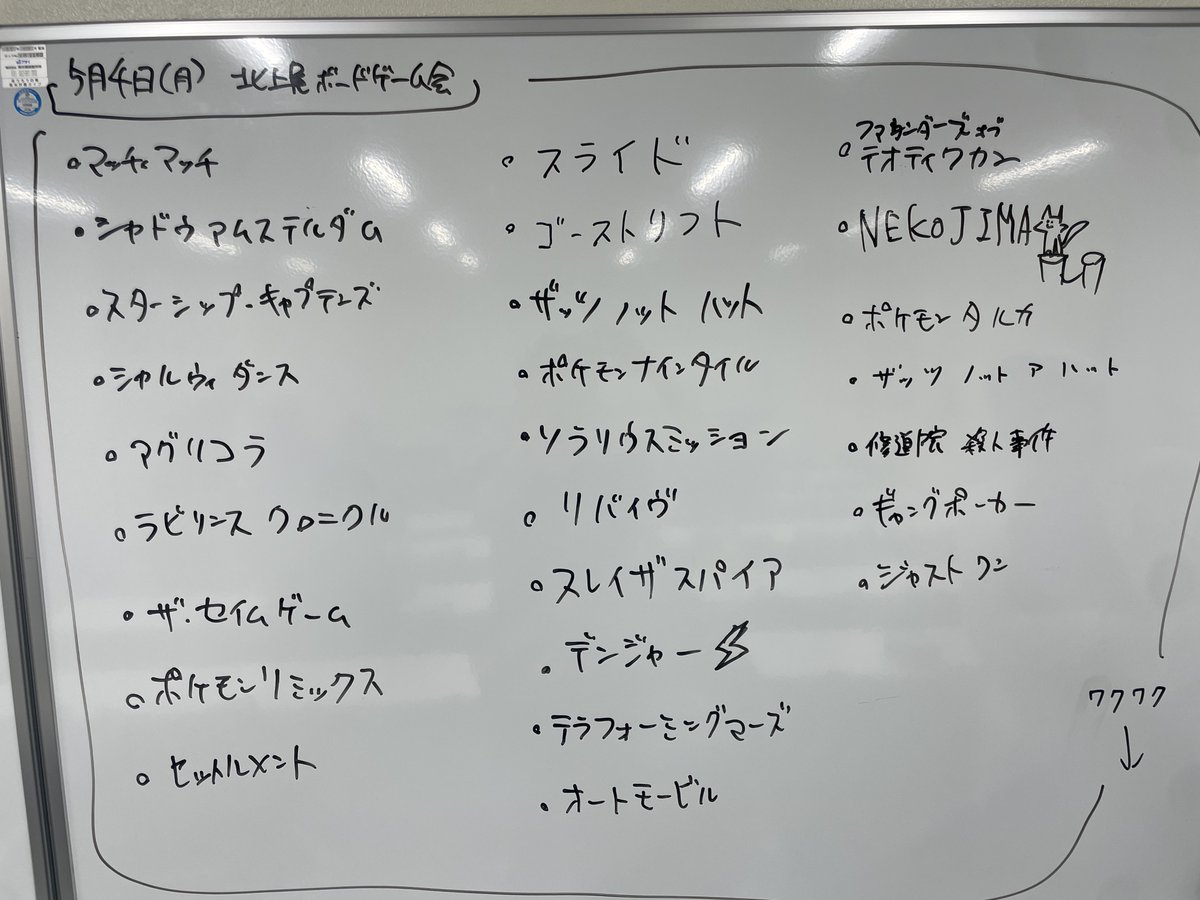 5月4日(月) 北上尾ボードゲーム会
。マッチ・マッチ
・シャドウアムステルダム
。スターシップ・キャプテンズ
・シャルウィダンス
。アグリコラ
。ラビリンス クロニクル
・ザ・セイムゲーム
。ポケモンリミックス
。セットルメント
。スライド
。ゴーストリフト
。ザッツ ノット ハット
。ポケモンナインタイル
・ソラリウスミッション
。リバイヴ
。スレイザスパイア
。デンジャー
・テラフォーミングマーズ
・オートモービル
ファウンダーズオブ
。テオティワカン
。NEKOJIMA
。ポケモンタルカ
・ザッツ ノット ア ハット
。修道院 殺人事件
。ギャングポーカー
。ジャストワン
ワクワク
↓